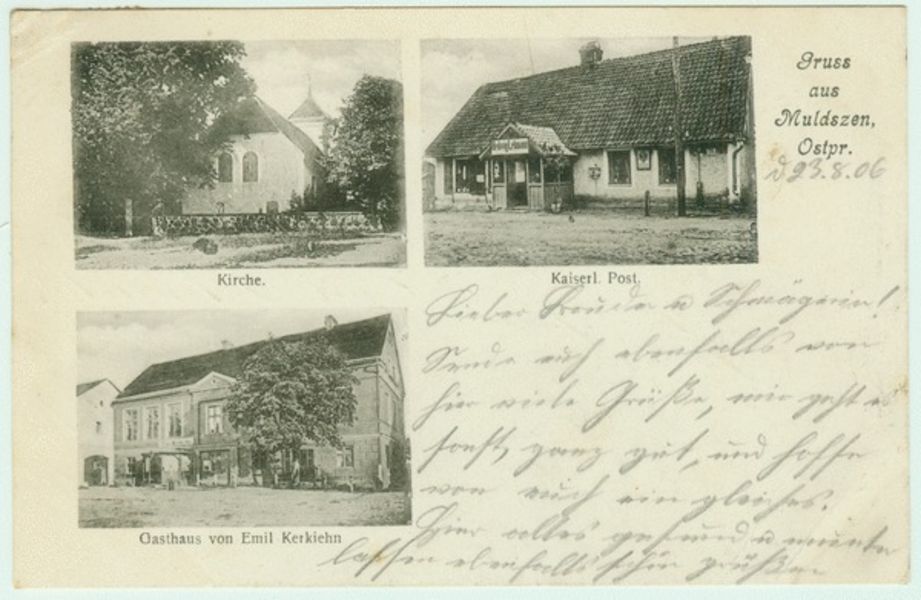 Gruss
aus
Muldszen,
Ostpr.
d 23.8.06
Kirche.
Kaiserl. Post.
Gasthaus von Emil Kerkiehn
Lieber Bruder u Schwägerin!
Sende euch ebenfalls von
hier viele Grüße, mir geht es
sonst, ganz gut, und hoffe
von euch ein gleiches.
Hier alles gesund u munter
lassen ebenfalls schön grüßen